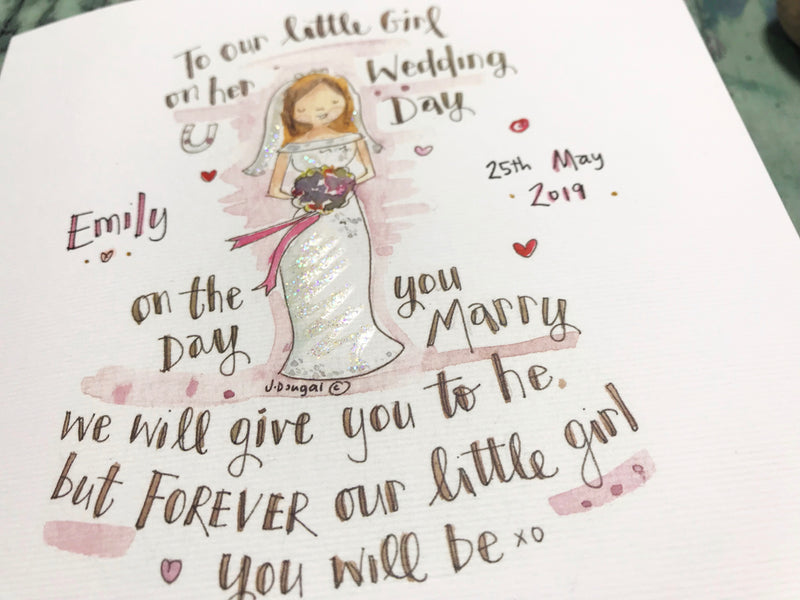 To our little Girl
on her Wedding
Day
25th May
2019
Emily
on the you
Day Marry
J.Dougal ©
we will give you to he.
but FOREVER our little girl
you will be xo